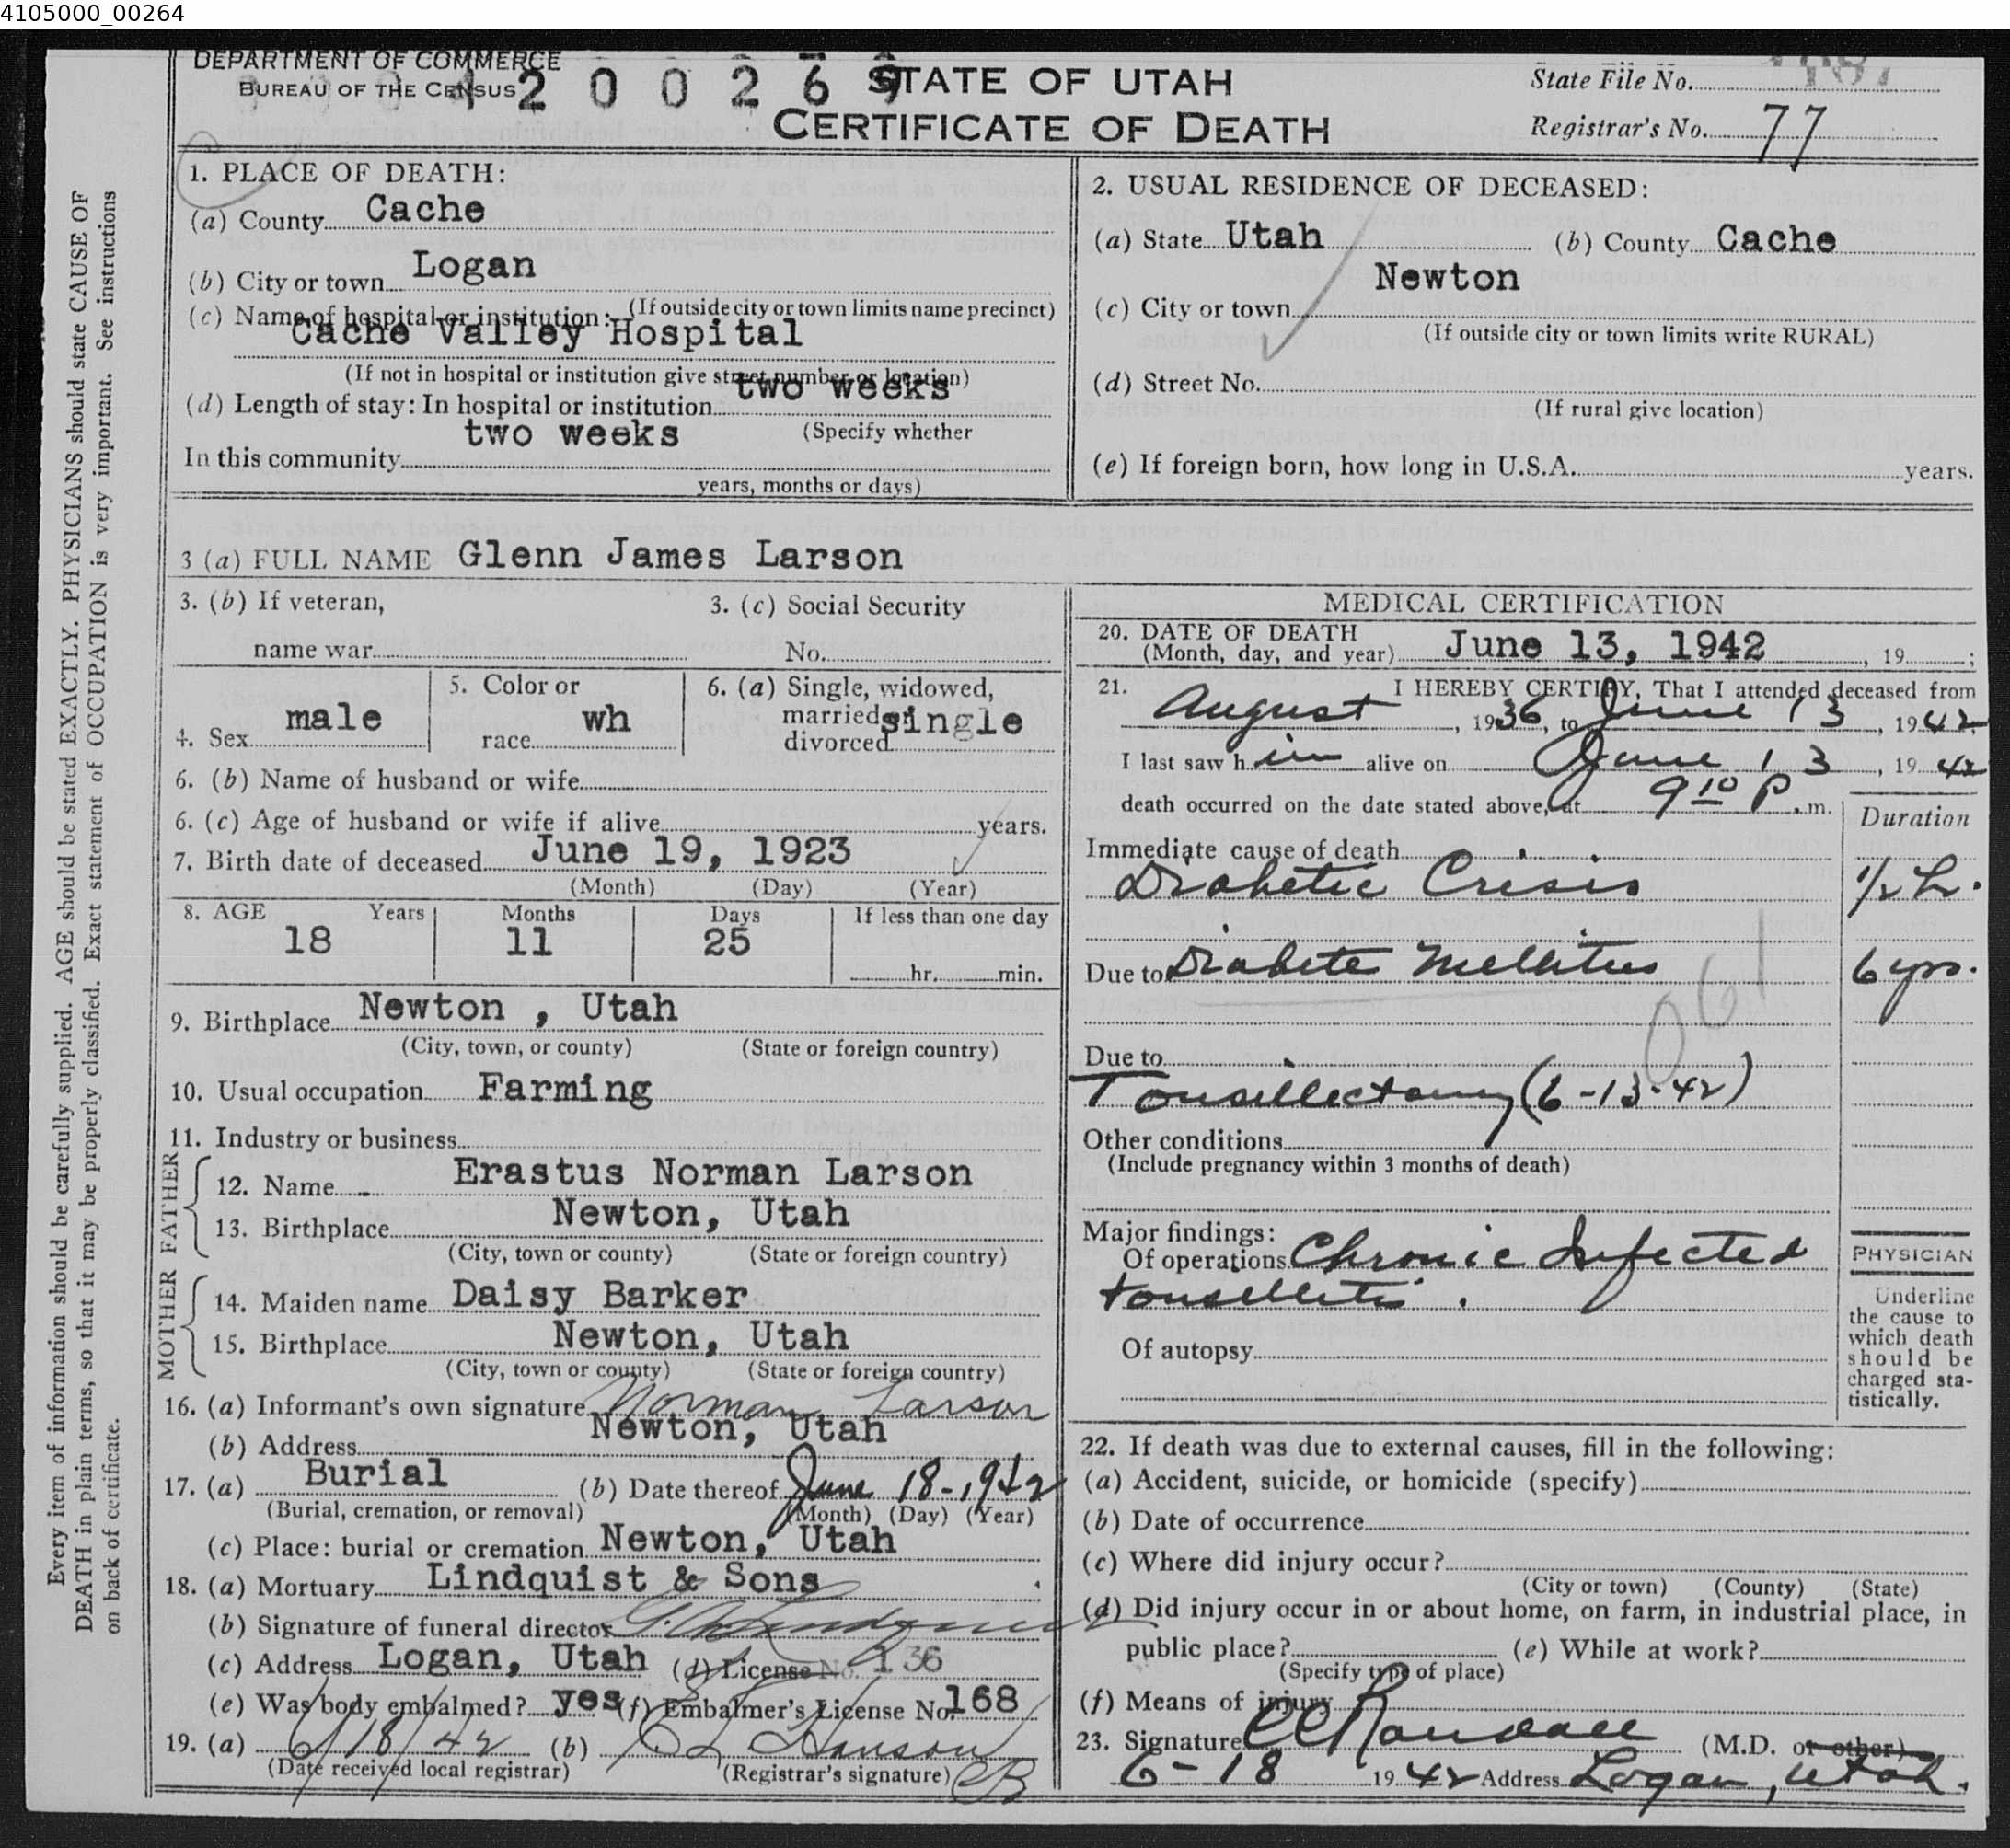 4105000_00264
DEPARTMENT OF COMMERCE
BUREAU OF THE CENSUS
4200269
STATE OF UTAH
CERTIFICATE OF DEATH
State File No.
Registrar's No. 77
1. PLACE OF DEATH:
(a) County Cache
(b) City or town Logan
(If outside city or town limits name precinct)
(c) Name of hospital or institution:
Cache Valley Hospital
(If not in hospital or institution give street number or location)
(d) Length of stay: In hospital or institution two weeks
(Specify whether
In this community two weeks
years, months or days)
2. USUAL RESIDENCE OF DECEASED:
(a) State Utah (b) County Cache
(c) City or town Newton
(If outside city or town limits write RURAL)
(d) Street No.
(If rural give location)
(e) If foreign born, how long in U.S.A. years.
3 (a) FULL NAME Glenn James Larson
3. (b) If veteran,
name war
3. (c) Social Security
No.
4. Sex male
5. Color or
race wh
6. (a) Single, widowed,
married or
divorced single
6. (b) Name of husband or wife
6. (c) Age of husband or wife if alive years.
7. Birth date of deceased June 19, 1923
(Month) (Day) (Year)
8. AGE Years Months Days If less than one day
18 11 25
hr. min.
9. Birthplace Newton , Utah
(City, town, or county) (State or foreign country)
10. Usual occupation Farming
11. Industry or business
FATHER
12. Name Erastus Norman Larson
13. Birthplace Newton, Utah
(City, town or county) (State or foreign country)
MOTHER
14. Maiden name Daisy Barker
15. Birthplace Newton, Utah
(City, town or county) (State or foreign country)
16. (a) Informant's own signature Norman Larson
(b) Address Newton, Utah
17. (a) Burial (b) Date thereof June 18-1942
(Burial, cremation, or removal) (Month) (Day) (Year)
(c) Place: burial or cremation Newton, Utah
18. (a) Mortuary Lindquist & Sons
(b) Signature of funeral director
(c) Address Logan, Utah (d) License No. 136
(e) Was body embalmed? yes (f) Embalmer's License No. 168
19. (a) 6/18/42 (b) Hanson
(Date received local registrar) (Registrar's signature)
MEDICAL CERTIFICATION
20. DATE OF DEATH
(Month, day, and year) June 13, 1942, 19 ;
21. I HEREBY CERTIFY, That I attended deceased from
August, 1936, to June 13, 1942.
I last saw him alive on June 13, 19 42
death occurred on the date stated above, at 9 10 P.m.
Duration
Immediate cause of death
Diabetic Crisis 1/2 h.
Due to Diabete Mellitus 6 yrs.
061
Due to
Tonsillectomy (6-13-42)
Other conditions
(Include pregnancy within 3 months of death)
Major findings:
Of operations Chronic Infected
tonsellitis.
Of autopsy
PHYSICIAN
Underline
the cause to
which death
should be
charged sta-
tistically.
22. If death was due to external causes, fill in the following:
(a) Accident, suicide, or homicide (specify)
(b) Date of occurrence
(c) Where did injury occur?
(City or town) (County) (State)
(d) Did injury occur in or about home, on farm, in industrial place, in
public place? (e) While at work?
(Specify type of place)
(f) Means of injury
23. Signature CC Randall (M.D. or other)
6-18 19 42 Address Logan, Utah.
Every item of information should be carefully supplied. AGE should be stated EXACTLY. PHYSICIANS should state CAUSE OF
DEATH in plain terms, so that it may be properly classified. Exact statement of OCCUPATION is very important. See instructions
on back of certificate.